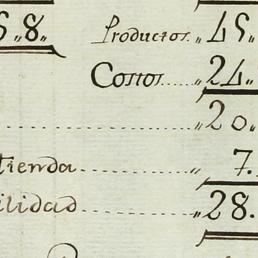 6,,8,,
Productos..,,45,,
Costos......,,24,,
..........,,20..
tienda..........,,7.
ilidad..........,,28.